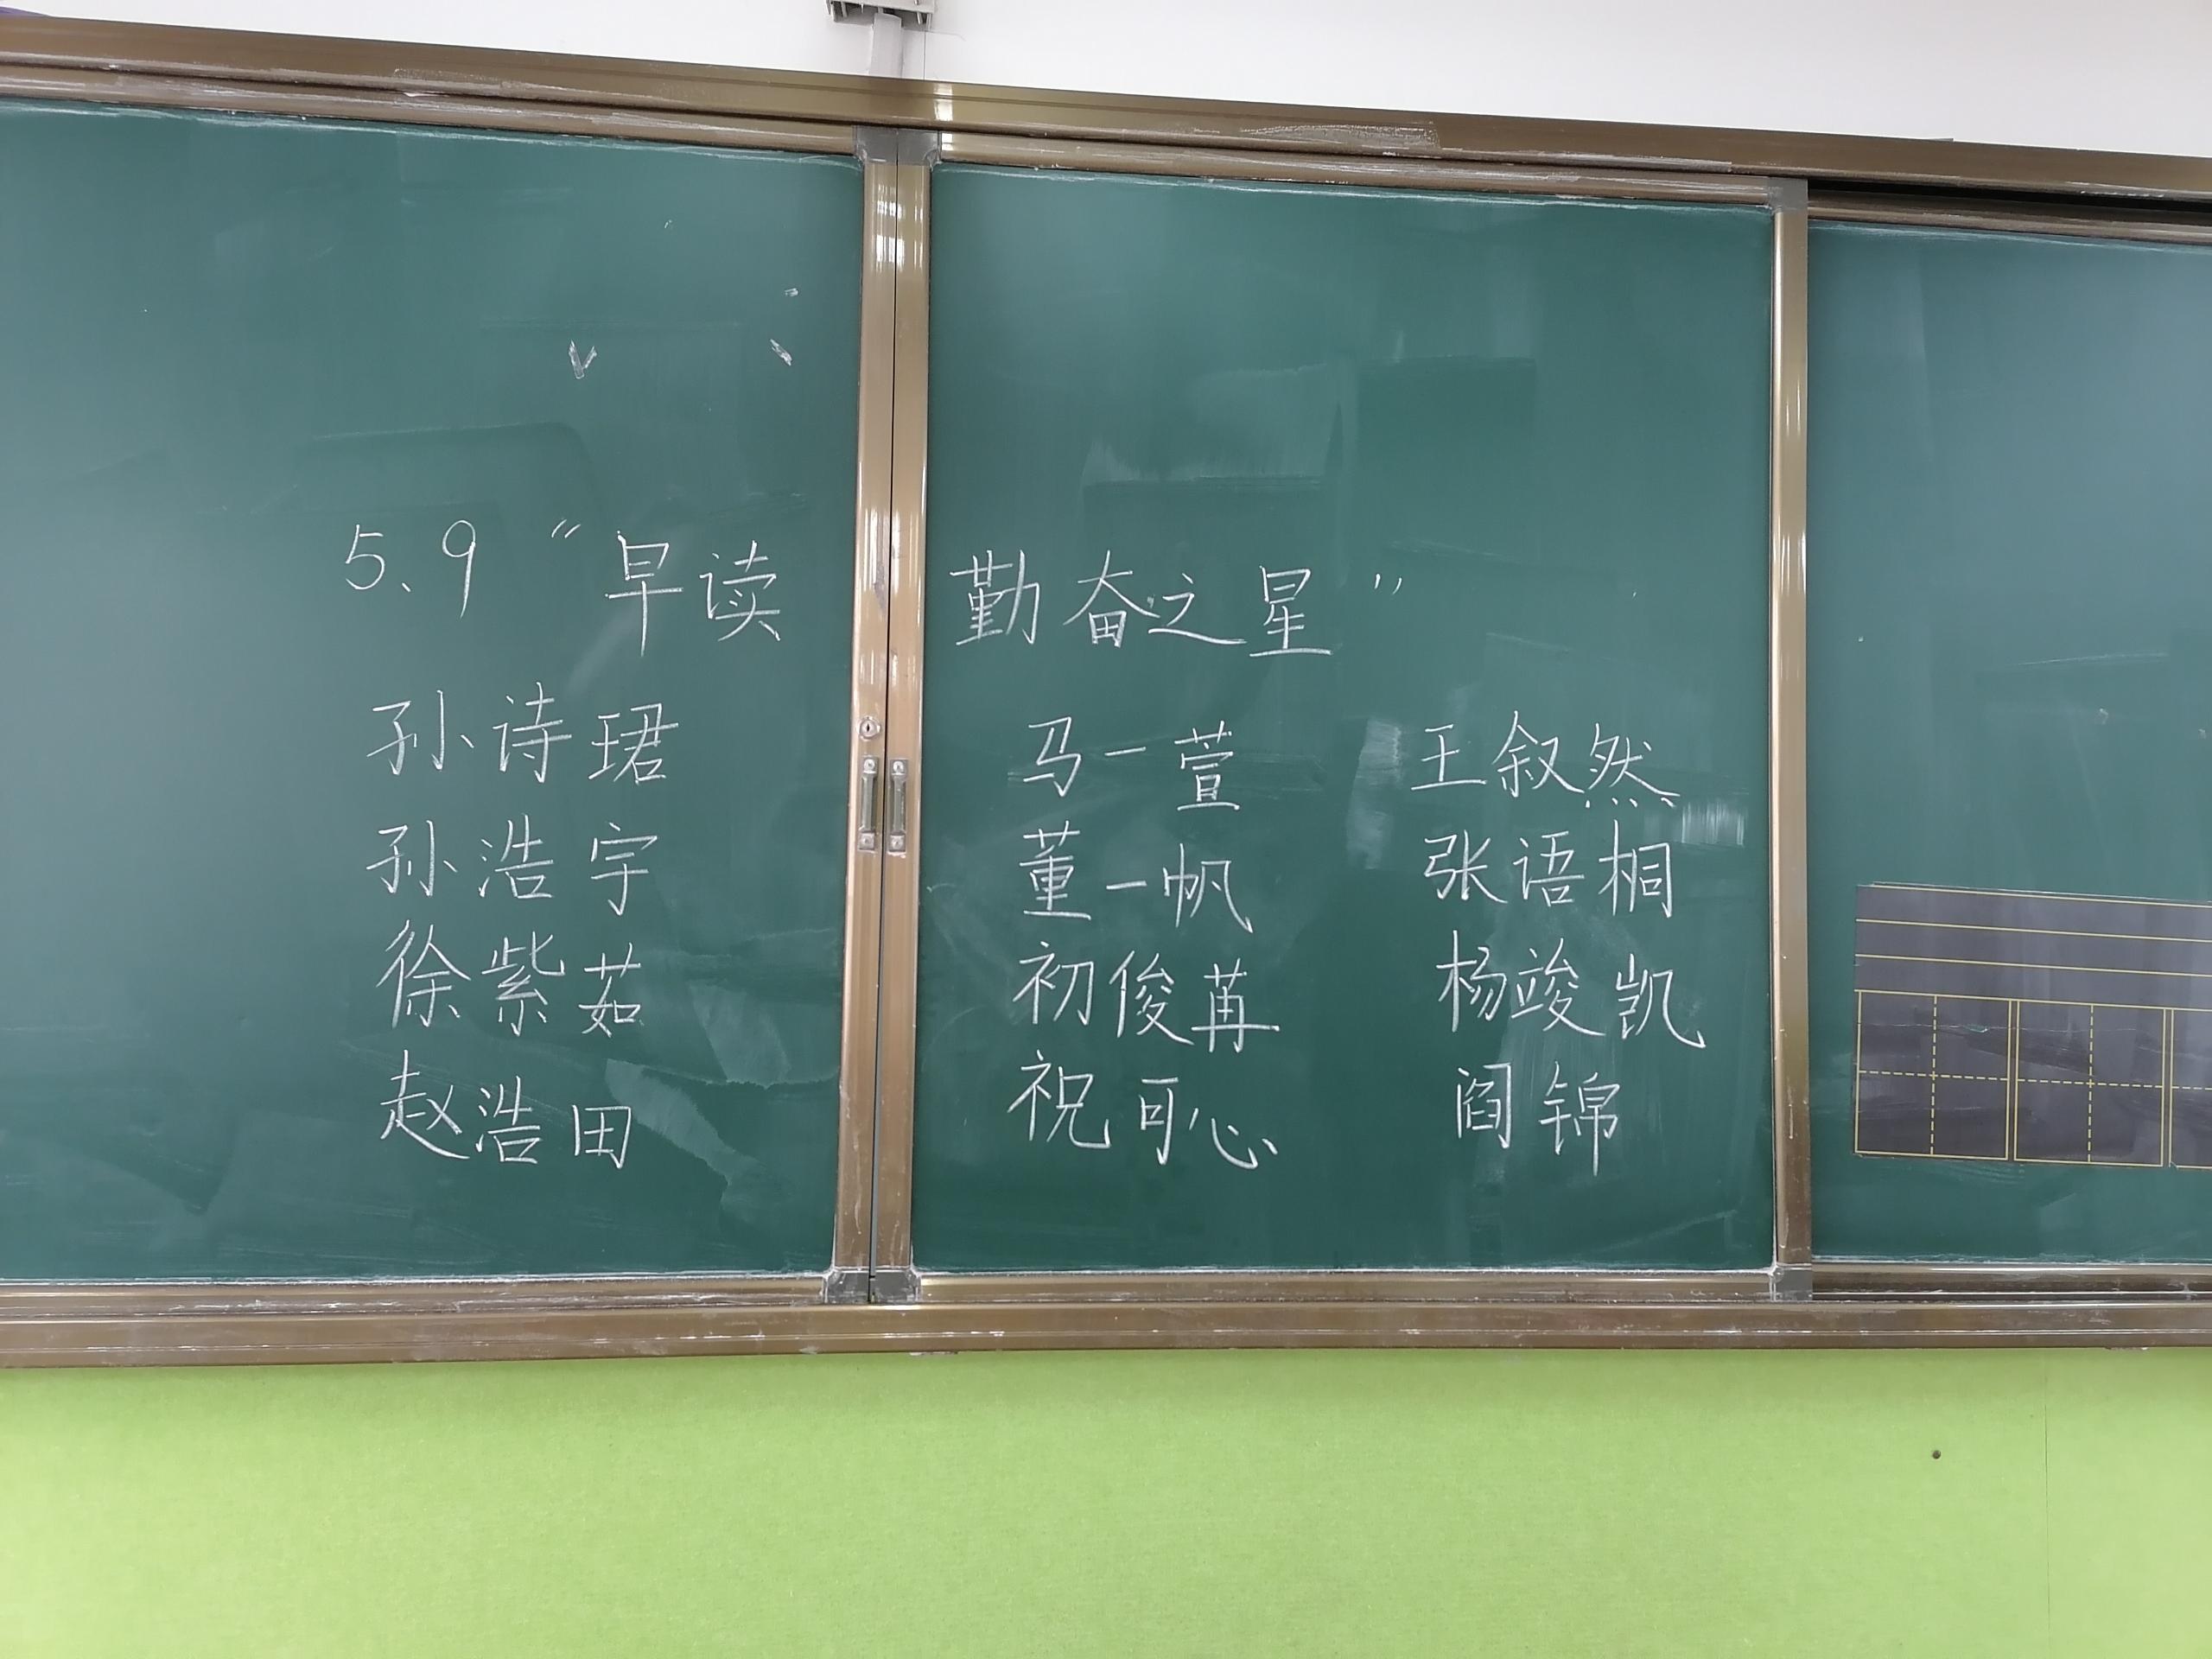 5.9 “早读 勤奋之星”
孙诗珺 马一萱 王叙然
孙浩宇 董一帆 张语桐
徐紫茹 初俊苒 杨竣凯
赵浩田 祝可心 阎锦